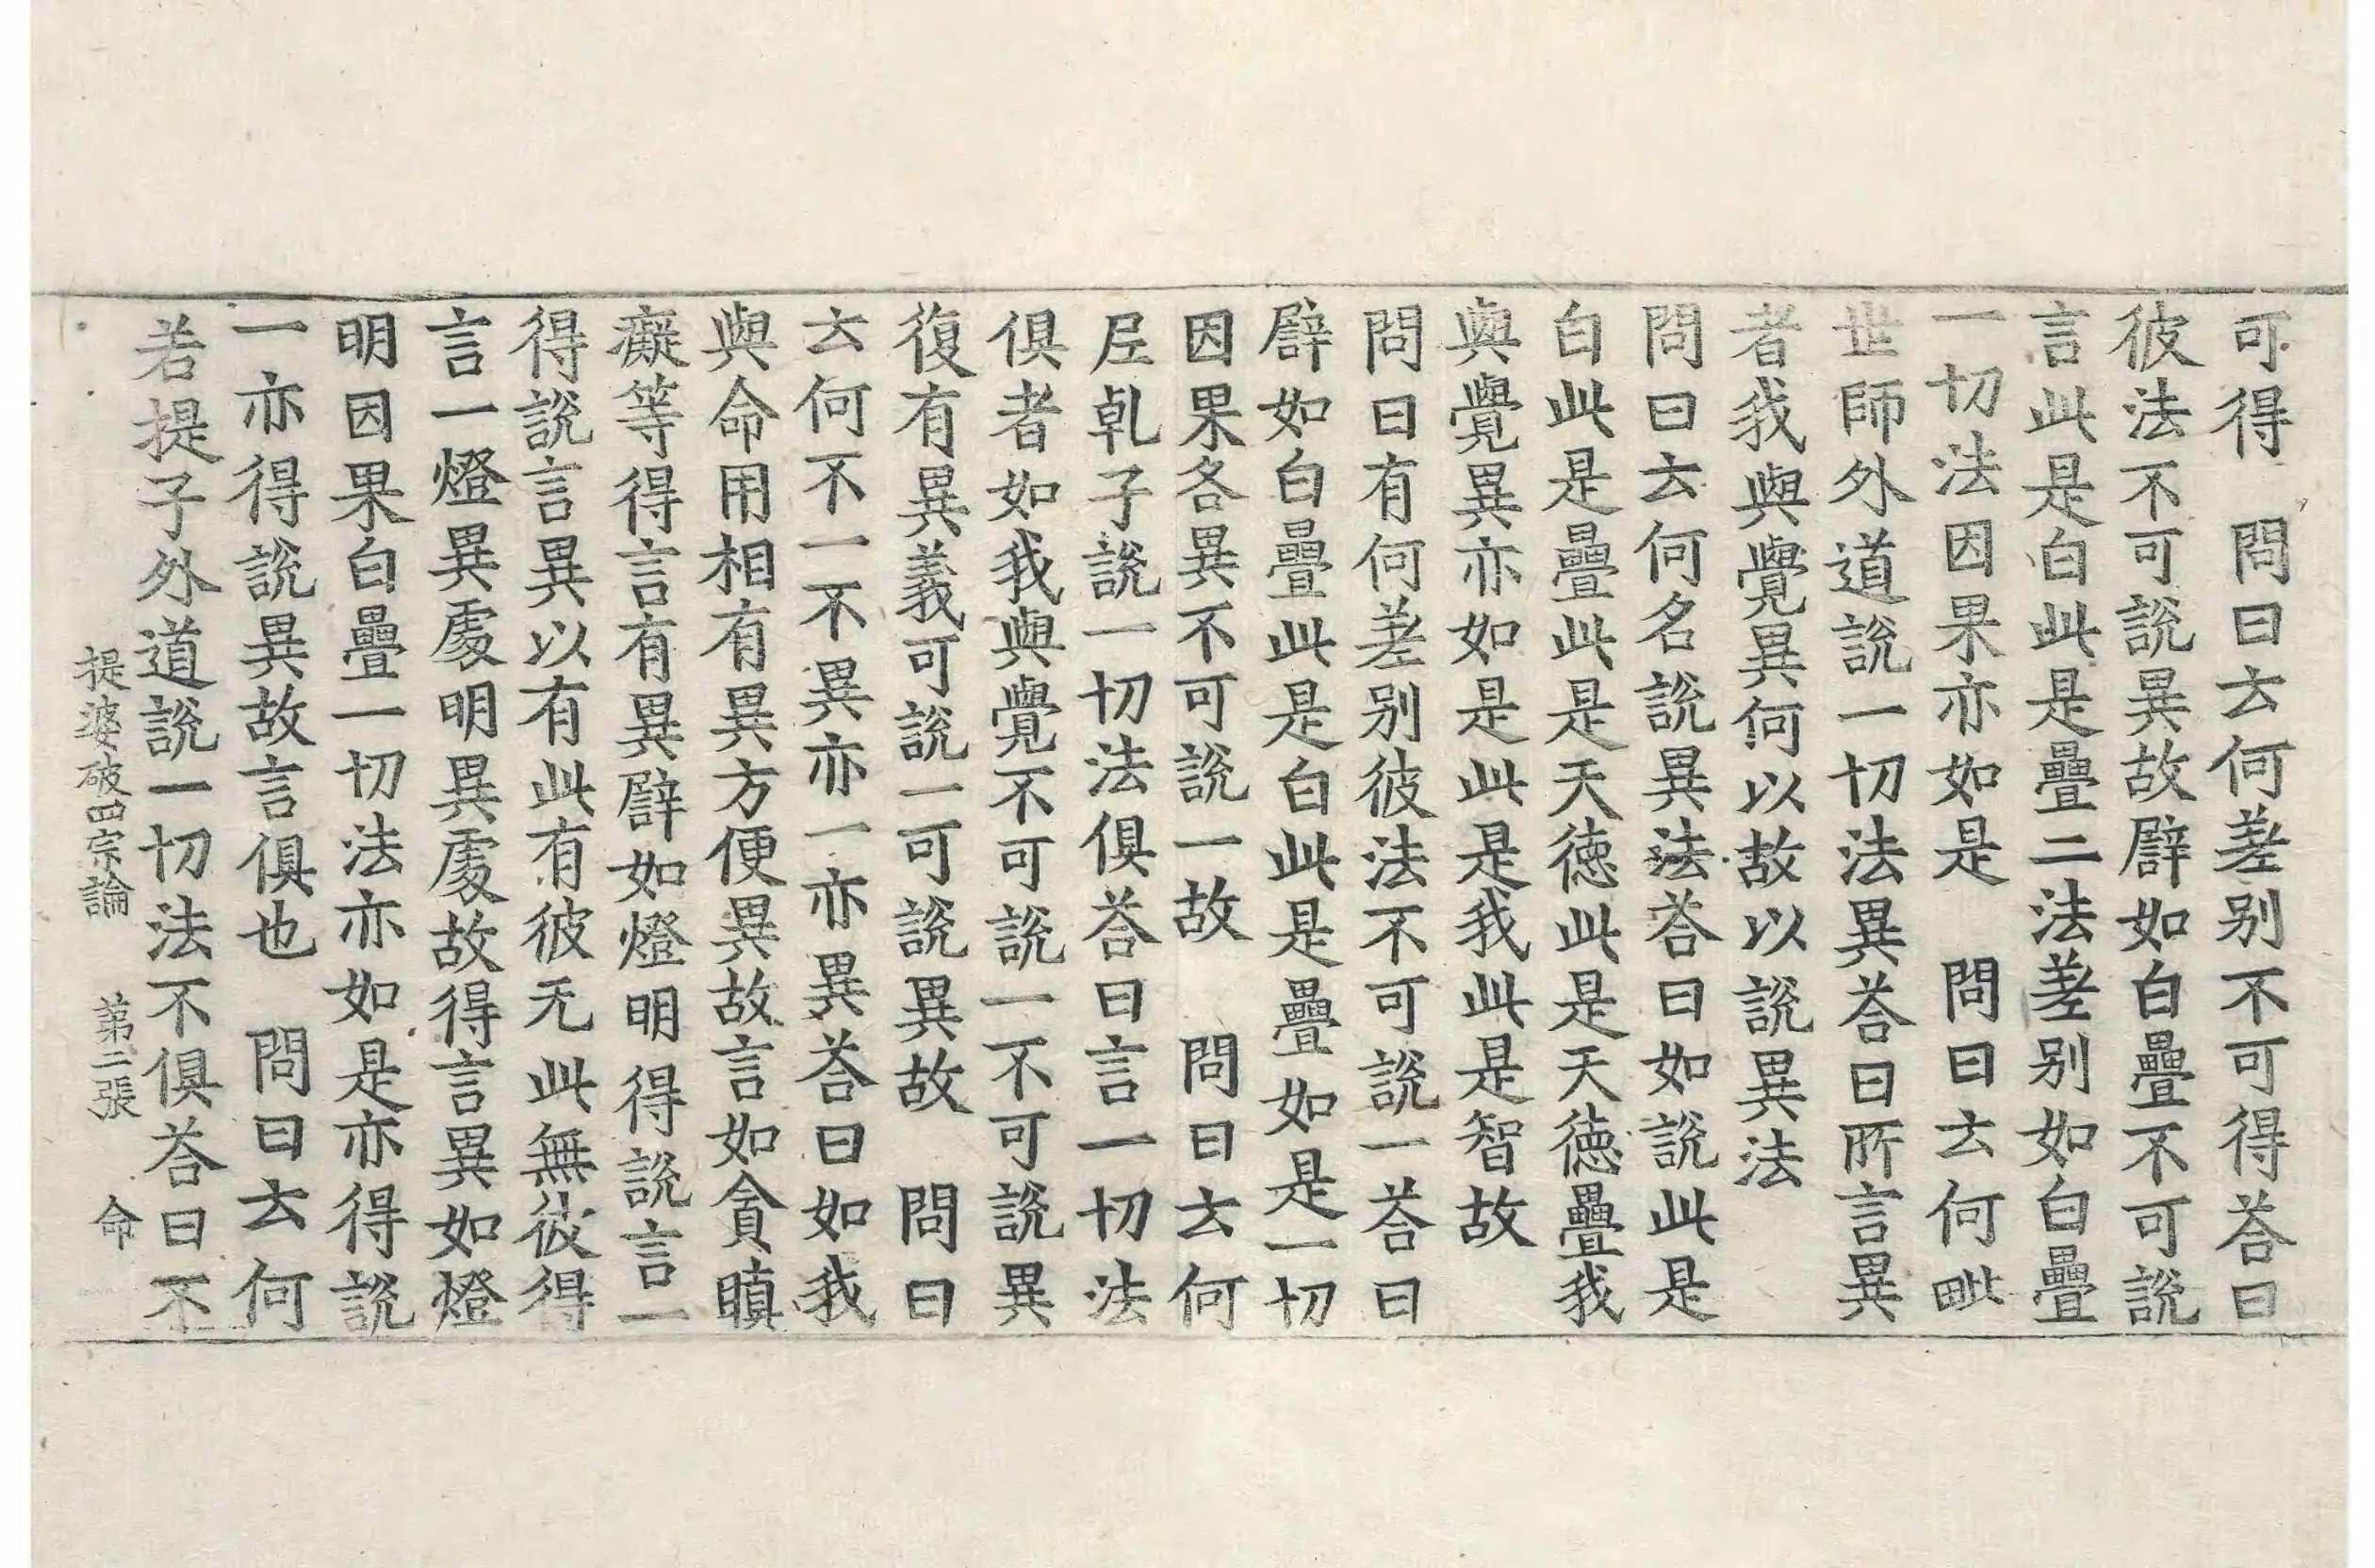 可得　問曰云何差别不可得荅曰
彼法不可說異故譬如白疊不可說
言此是白此是疊二法差别如白疊
一切法因果亦如是　問曰云何毗
世師外道說一切法異荅曰所言異
者我與覺異何以故以說異法
問曰云何名說異法荅曰如說此是
白此是疊此是天德此是天德疊我
與覺異亦如是此是我此是智故
問曰有何差别彼法不可說一荅曰
譬如白疊此是白此是疊如是一切
因果各異不可說一故　問曰云何
尼乹子說一切法俱荅曰言一切法
俱者如我與覺不可說一不可說異
復有異義可說一可說異故　問曰
云何不一不異亦一亦異荅曰如我
與命用相有異方便異故言如貪瞋
癡等得言有異譬如燈明得說言一
得說言異以有此有彼无此無彼得
言一燈異處明異處故得言異如燈
明因果白疊一切法亦如是亦得說
一亦得說異故言俱也　問曰云何
若提子外道說一切法不俱荅曰不
提婆破四宗論　第二張　命